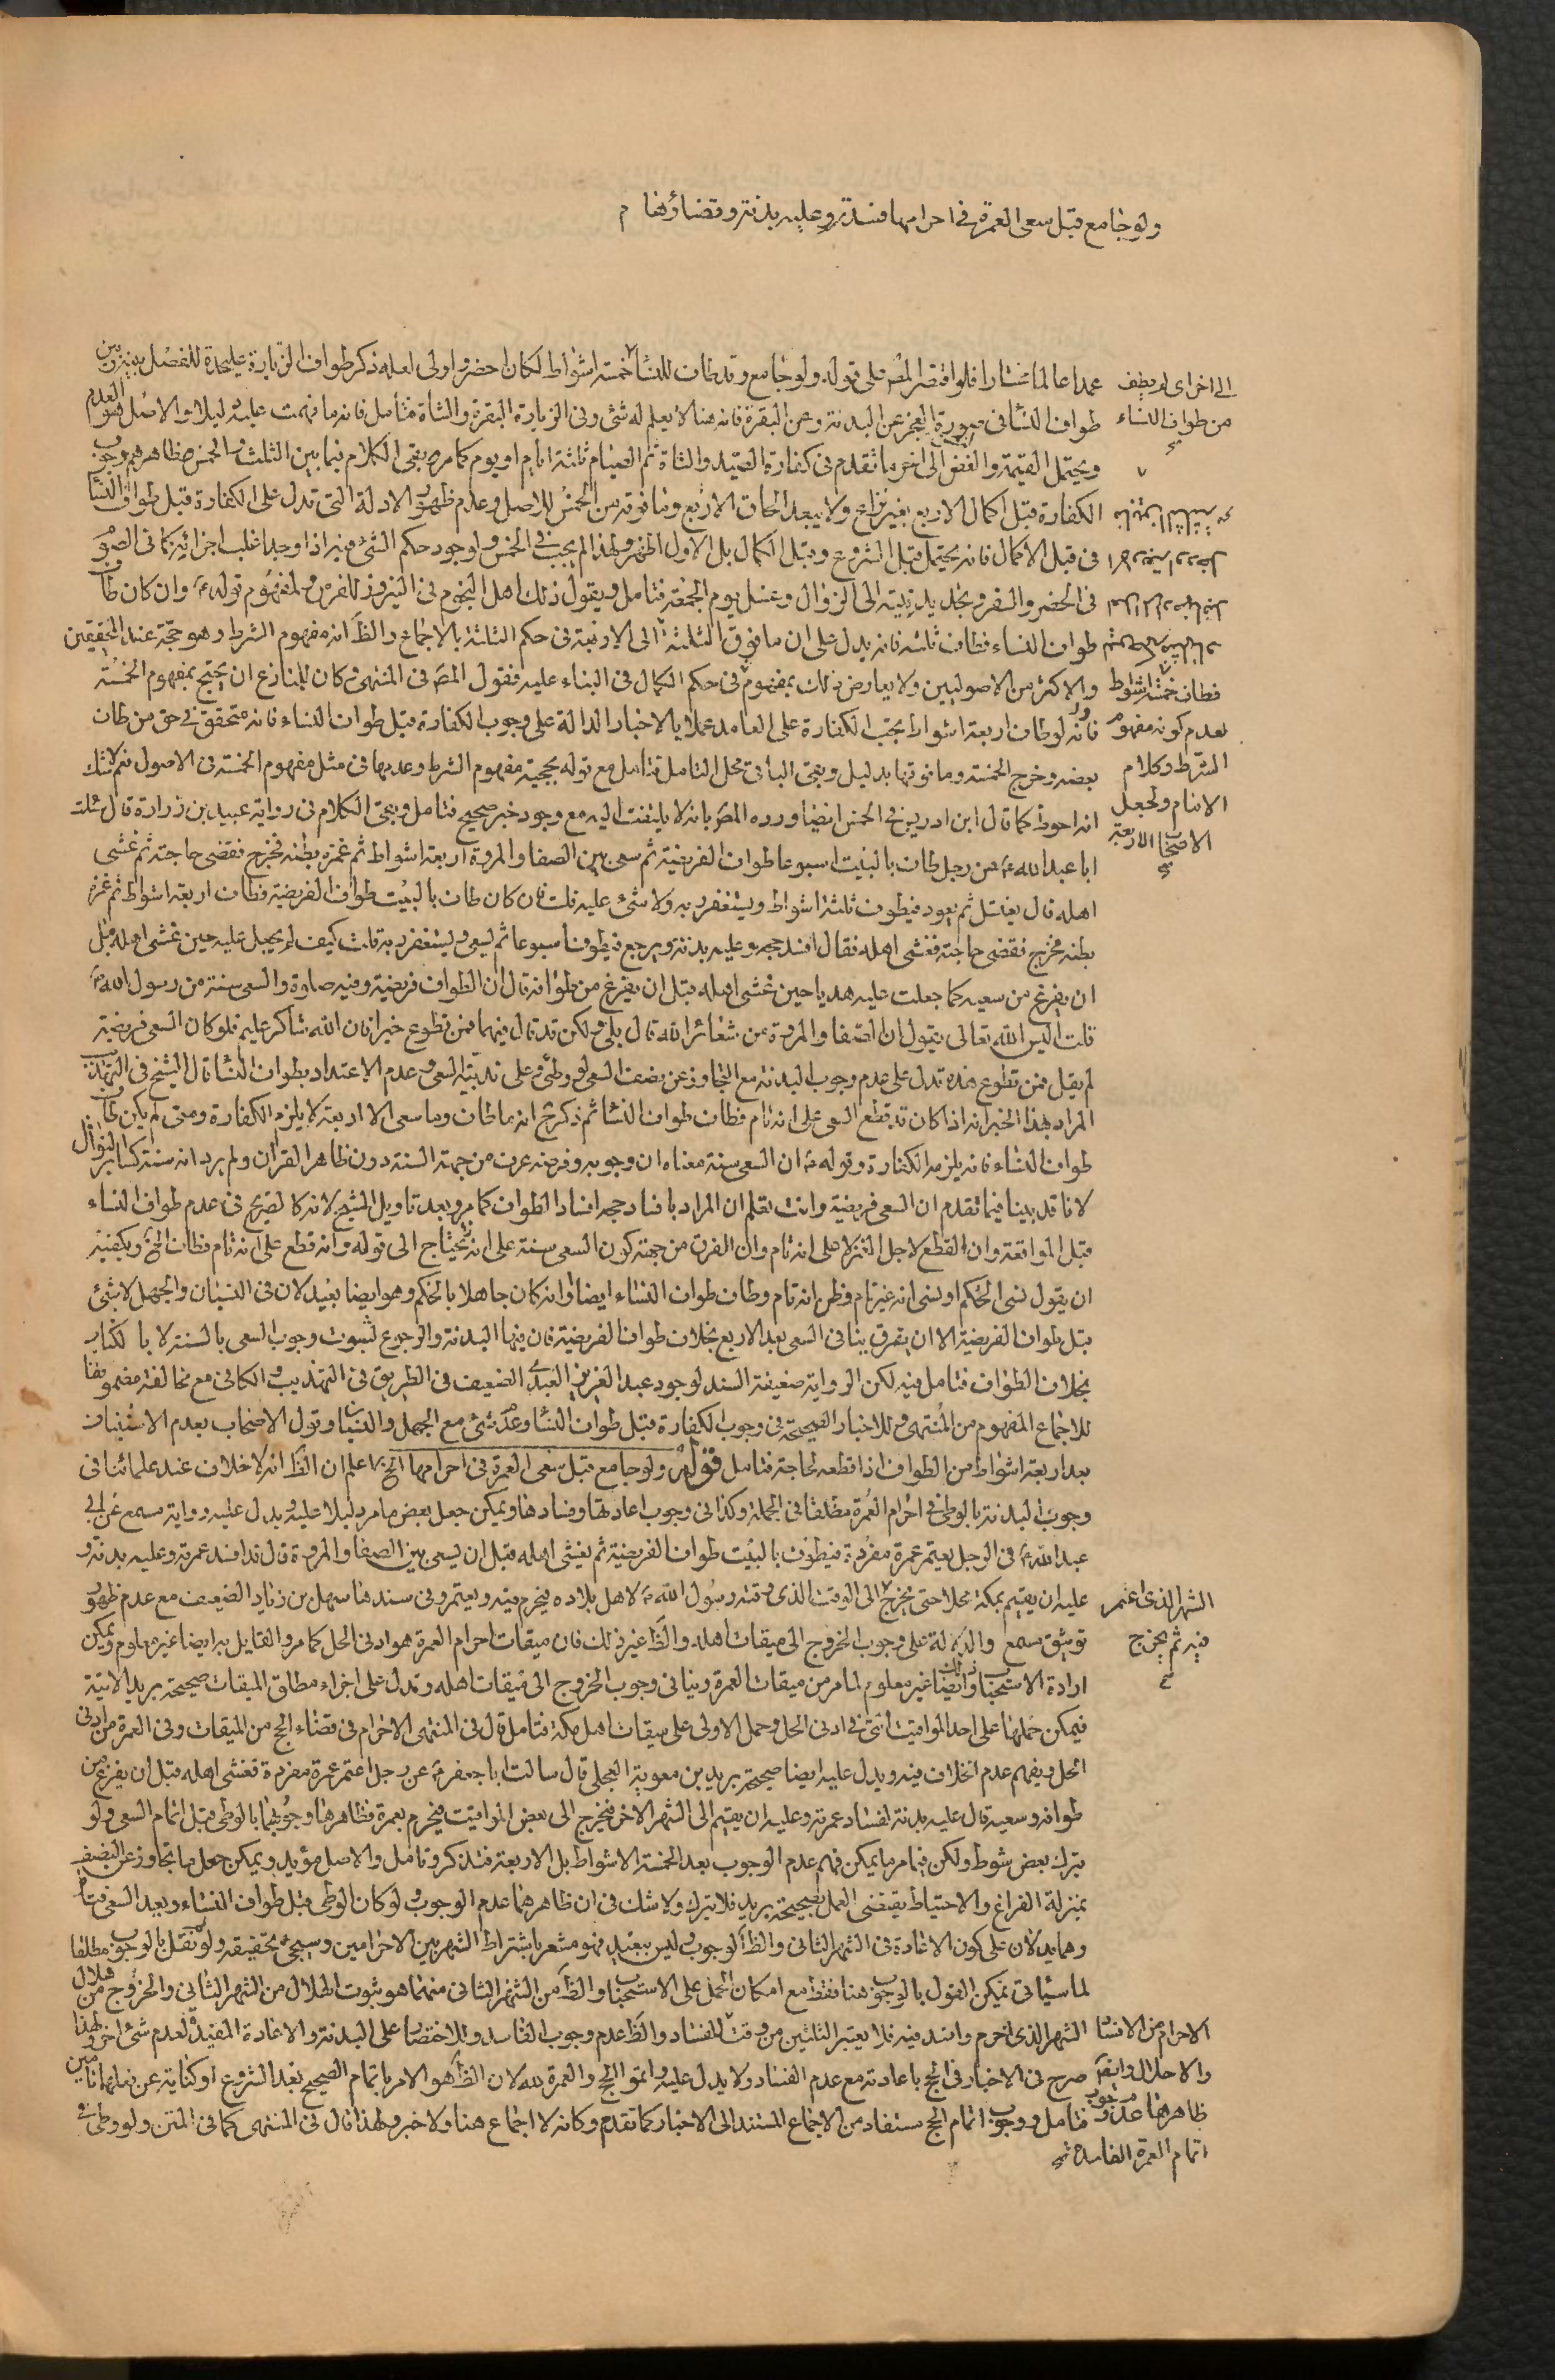 ولو جامع قبل سعى العمرة فى احرامها فسدت وعليه بدنة وقضاؤها م
عمدا عالما مختارا فلو اقتصر المص على قوله ولو جامع وقد طاف للنسا خمسة اشواط لكان احضر واولى لعله ذكر طواف الزيارة عليحدة للفصل بينه وبين
طواف النسا فى صورة العجز عن البدنة وعن البقرة فانه هنا لا يعلم له شئ وفى الزيارة البقرة والشاة فتأمل فانه ما فهمت عليه دليلا والاصل هو العدم
ويحتمل القيمة والفض الى اخر ما تقدم فى كفارة الصيد والشاة ثم الصيام ثلثة ايام او يوم كما مر وبقى الكلام فيما بين الثلث والخمس فظاهرهم وجوب
الكفارة قبل اكمال الاربع بغير نزاع ولا يبعد الحاق الاربع وما فوقه من الخمس للاصل وعدم ظهور الادلة التى تدل على الكفارة قبل طواف النسا
فى قبل الاكمال فانه يحتمل قبل الشروع وقبل الكمال بل الاول اظهر ولهذا لم يجب فى الخمس ولوجود حكم الشئ فيه اذا وجد اغلب اجزائه كما فى الصوم
فى الحضر والسفر وتجديد نيته الى الزوال وغسل يوم الجمعة فتامل ويقول ذلك اهل النجوم فى النيروز للفرس ولمفهوم قوله ع وان كان طاف
طواف النساء فطاف ثلثه فانه يدل على ان ما فوق الثلثة الى الاربعة فى حكم الثلثة بالاجماع والظ انه مفهوم الشرط وهو حجة عند المحققين
والاكثر من الاصوليين ولا يعارض ذلك بمفهوم فى حكم الكمال فى البناء عليه فقول المص فى المنتهى وكان للمنازع ان يحتج بمفهوم الخمسة
فانه لو طاف اربعة اشواط يجب الكفارة على العامد عملا بالاخبار الدالة على وجوب الكفارة قبل طواف النساء فانه متحقق فى حق من طاف
بعضه وخرج الخمسة وما فوقها بدليل وبقى الباقى محل التامل فتامل مع قوله بحجية مفهوم الشرط وعدمها فى مثل مفهوم الخمسة فى الاصول نعم لا شك
انه احوط كما قال ابن ادريس فى الخمس ايضا ورده المص بانه لا يلتفت اليه مع وجود خبر صحيح فتامل وبقى الكلام فى رواية عبيد بن زرارة قال سئلت
ابا عبد الله ع عن رجل طاف بالبيت اسبوعا طواف الفريضة ثم سعى بين الصفا والمروة اربعة اشواط ثم غمزه بطنه فخرج فقضى حاجته ثم غشى
اهله قال يغتسل ثم يعود فيطوف ثلثة اشواط ويستغفر ربه ولا شئ عليه قلت فان كان طاف بالبيت طواف الفريضة فطاف اربعة اشواط ثم غمزه
بطنه فخرج فقضى حاجته فغشى اهله فقال افسد حجه وعليه بدنة ويرجع فيطوف اسبوعا ثم يسعى ويستغفر ربه قلت كيف لم يجعل عليه حين غشى اهله قبل
ان يفرغ من سعيه كما جعلت عليه هديا حين غشى اهله قبل ان يفرغ من طوافه قال ان الطواف فريضة وفيه صلوة والسعى سنة من رسول الله ص
قلت اليس الله تعالى يقول ان الصفا والمروة من شعائر الله قال بلى ولكن قد قال فيهما فمن تطوع خيرا فان الله شاكر عليم فلو كان السعى فريضة
لم يقل فمن تطوع هذه تدل على عدم وجوب البدنة مع التجاوز عن نصف السعى لو وطى وعلى ندبية السعى وعدم الاعتداد بطواف النسا قال الشيخ فى التهذيب
المراد بهذا الخبر انه اذا كان قد قطع السعى على انه تام فطاف طواف النسا ثم ذكر انه ما طاف وما سعى الا اربعة لا يلزم الكفارة ومتى لم يكن طاف
طواف النساء فانه يلزمه الكفارة وقوله ع ان السعى سنة معناه ان وجوبه وفرضه عرف من جهة السنة دون ظاهر القران ولم يرد انه سنة كسائر النوافل
لانا قد بينا فيما تقدم ان السعى فريضة وانت تعلم ان المراد بافساد حجه افساد الطواف كما مر وبعد تاويل الشيخ لانه كالصريح فى عدم طواف النساء
قبل المواقعة وان القطع لاجل الغمز لا على انه تام وان الفرق من جهة كون السعى سنة على انه يحتاج الى قوله وانه قطع على انه تام فطاف الخ ويكفيه
ان يقول نسى الحكم او نسى انه غير تام وظن انه تام وطاف طواف النساء ايضا وانه كان جاهلا بالحكم وهو ايضا بعيد لان فى النسيان والجهل لا شئ
قبل طواف الفريضة الا ان يفرق بينا فى السعى بعد الاربع بخلاف طواف الفريضة فان فيها البدنة والرجوع لثبوت وجوب السعى بالسنة لا بالكتاب
بخلاف الطواف فتامل فيه لكن الرواية ضعيفة السند لوجود عبد العزيز العبدى الضعيف فى الطريق فى التهذيب والكافى مع مخالفة مضمونها
للاجماع المفهوم من المنتهى وللاخبار الصحيحة فى وجوب الكفارة قبل طواف النسا وعدم شئ مع الجهل والنسيان وقول الاصحاب بعدم الاستيناف
بعد اربعة اشواط من الطواف اذا قطعه لحاجة فتامل قوله ولو جامع قبل سعى العمرة فى احرامها الخ اعلم ان الظ انه لا خلاف عند علمائنا فى
وجوب البدنة بالوطى فى احرام العمرة مطلقا فى الجملة وكذا فى وجوب اعادتها وفسادها ويمكن جعل بعض ما مر دليلا عليه ويدل عليه رواية مسمع عن ابى
عبد الله ع فى الرجل يعتمر عمرة مفردة فيطوف بالبيت طواف الفريضة ثم يغشى اهله قبل ان يسعى بين الصفا والمروة قال قد افسد عمرته وعليه بدنة و
عليه ان يقيم بمكة محلا حتى يخرج الى الوقت الذى وقته رسول الله ص لاهل بلاده فيحرم منه ويعتمر وفى سندها سهل بن زياد الضعيف مع عدم ظهور
توثيق مسمع والدلالة على وجوب الخروج الى ميقات اهله والظ غير ذلك فان ميقات احرام العمرة هو ادنى الحل كما مر والقايل به ايضا غير معلوم ويمكن
ارادة الاستحباب وايضا غير معلوم لما مر من ميقات العمرة وينافى وجوب الخروج الى ميقات اهله وتدل على اجزاء مطلق الميقات صحيحة بريد الاتية
فيمكن حملها على احد المواقيت التى فى ادنى الحل وحمل الاولى على ميقات اهل مكة فتامل قال فى المنتهى الاحرام فى قضاء الحج من الميقات وفى العمرة من ادنى
الحل ويفهم عدم الخلاف فيه ويدل عليه ايضا صحيحة بريد بن معوية العجلى قال سالت ابا جعفر ع عن رجل اعتمر عمرة مفردة فغشى اهله قبل ان يفرغ من
طوافه وسعيه قال عليه بدنة لفساد عمرته وعليه ان يقيم الى الشهر الاخر فيخرج الى بعض المواقيت فيحرم بعمرة فظاهرها وجوبهما بالوطى قبل اتمام السعى ولو
بترك بعض شوط ولكن فيما مر ما يمكن فهم عدم الوجوب بعد الخمسة الاشواط بل الاربعة فتذكر وتامل والاصل مؤيد ويمكن جعل ما تجاوز عن النصف
بمنزلة الفراغ والاحتياط يقتضى العمل بصحيحة بريد فلا يترك ولا شك فى ان ظاهرهما عدم الوجوب لو كان الوطى قبل طواف النساء وبعد السعى فتامل
وهما يدلان على كون الاعادة فى الشهر الثانى والظ الوجوب وليس ببعيد فهو مشعر باشتراط الشهر بين الاحرامين وسيجئ تحقيقه ولو لم نقل بالوجوب مطلقا
لما سيأتى يمكن القول بالوجوب هنا فقط مع امكان الحمل على الاستحباب والظ من الشهر الثانى منهما هو ثبوت الهلال من الشهر الثانى والخروج من هلال
الشهر الذى احرم وافسد فيه فلا يعتبر الثلثين من وقت الفساد والظ عدم وجوب الفاسد وللاختصار على البدنة والاعادة المفيد لعدم شئ اخر ولهذا
صرح فى الاخبار فى الحج باعادته مع عدم الفساد ولا يدل عليه واتموا الحج والعمرة لله لان الظ هو الامر باتمام الصحيح بعد الشروع او كناية عن فعلهما تامين
فتامل ووجوب اتمام الحج مستفاد من الاجماع المستند الى الاخبار كما تقدم وكانه لا اجماع هنا ولا خبر ولهذا قال فى المنتهى كما فى المتن ولو وطى فى
الى اخراى لم يطف
من طواف النساء
فطاف خمسة اشواط
لعدم كونه مفهوم
الشرط وكلام
الامام ولجعل
الاصحاب الاربعة
الشهر الذى اعتمر
فيه ثم يخرج
الاحرام من الافساد
والاحلال وايضا
ظاهرها عدم وجوب
اتمام العمرة الفاسدة